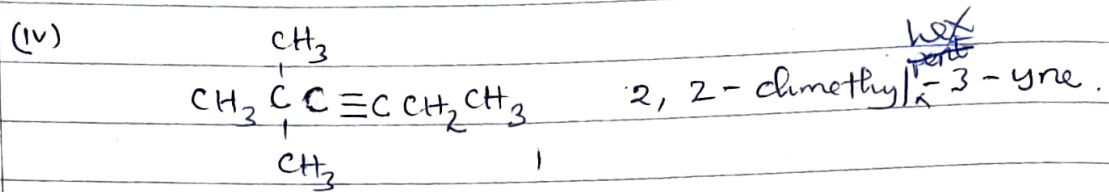 (iv) CH₃
CH₃ C C ≡ C CH₂ CH₃ 2, 2 - dimethyl hex - 3 - yne.
CH₃